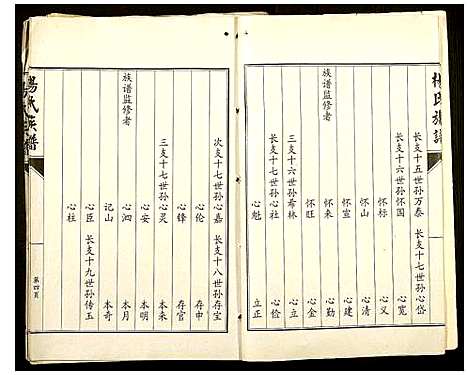 杨氏族谱
长支十五世孙万泰 长支十七世孙心岱
长支十六世孙怀国 心宽
怀标 心义
怀山 心清
怀宣 心建
族谱监修者
怀来 心勤
怀旺 心金
三支十六世孙希林 心俭
长支十七世孙心社 立正
心魁
次支十七世孙心嘉 长支十八世孙存宝
心伦 存申
心锋 存官
三支十七世孙心灵 本来
心安 本明
族谱监修者
心泗 本月
记山 本奇
心臣 长支十九世孙传玉
心柱
第四页
杨氏族谱